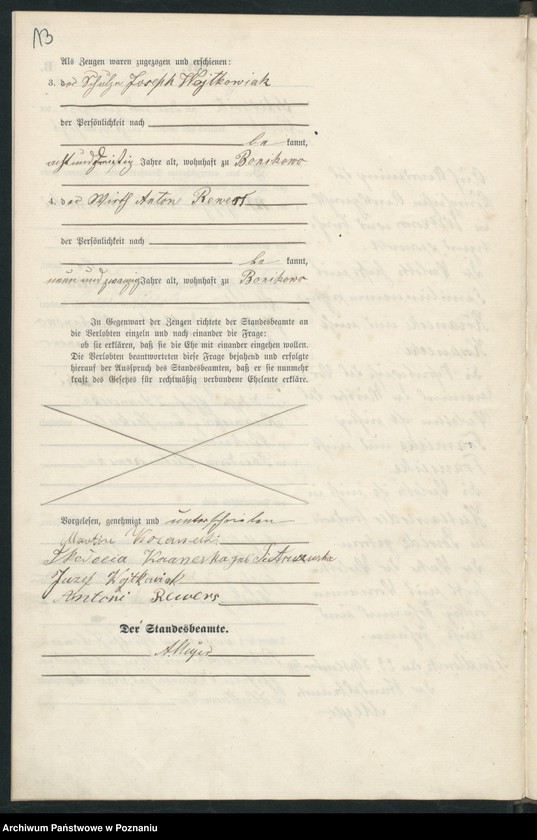 13
Als Zeugen waren zugezogen und erschienen:
3. der Schulze Joseph Wojtkowiak
der Persönlichkeit nach
be kannt,
acht und dreißig Jahre alt, wohnhaft zu Bonikowo
4. der Wirth Anton Rewers
der Persönlichkeit nach
be kannt,
neun und zwanzig Jahre alt, wohnhaft zu Bonikowo
In Gegenwart der Zeugen richtete der Standesbeamte an
die Verlobten einzeln und nach einander die Frage:
ob sie erklären, daß sie die Ehe mit einander eingehen wollen.
Die Verlobten beantworteten diese Frage bejahend und erfolgte
hierauf der Ausspruch des Standesbeamten, daß er sie nunmehr
kraft des Gesetzes für rechtmäßig verbundene Eheleute erkläre.
Vorgelesen, genehmigt und unterschrieben
Józef Wojtkowiak
Antoni Rewers
Der Standesbeamte.
Archiwum Państwowe w Poznaniu